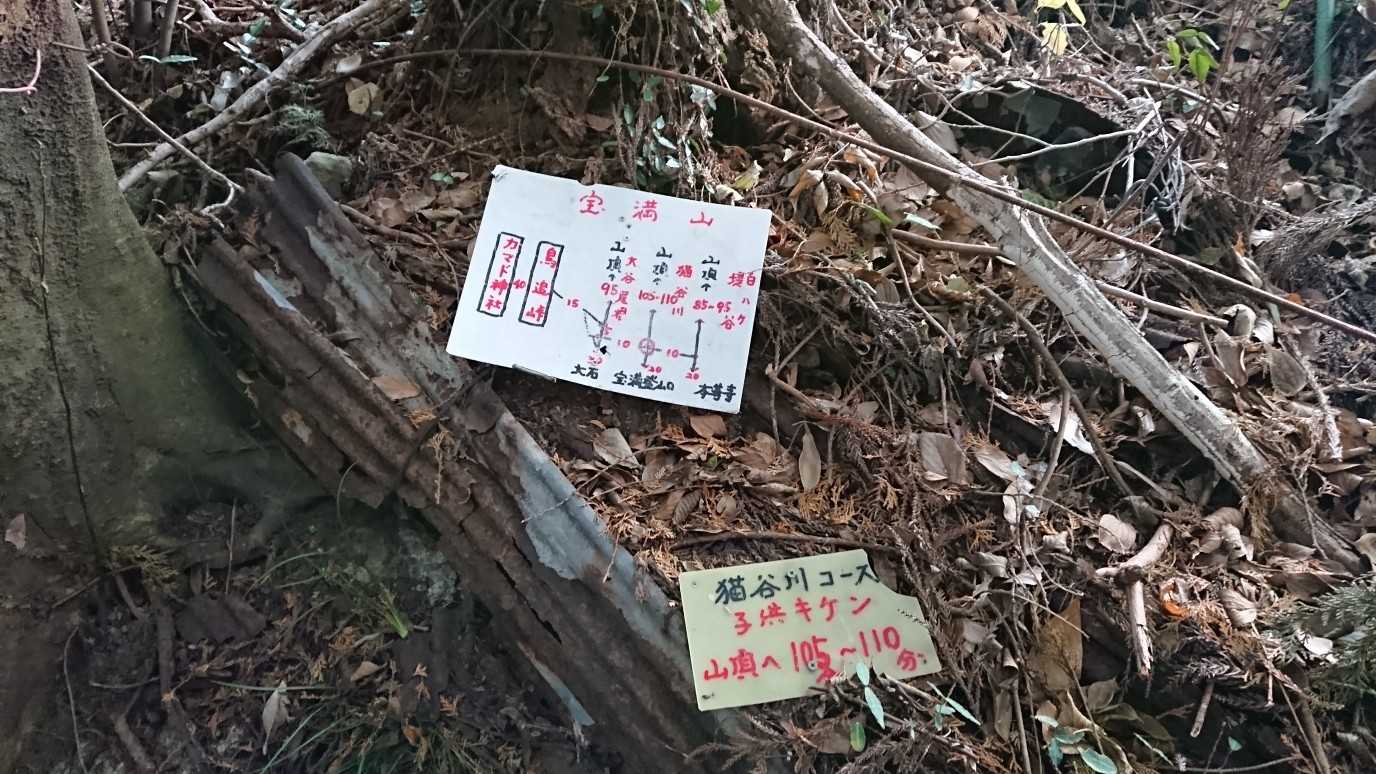 宝満山
カマド神社
40
鳥追峠
15
山頂
大谷尾根
95
山頂
猫谷川
105-110
山頂
85~95
白ハケ谷
10
10
20
20
大石
宝満登山口
本尊寺
猫谷川コース
子供キケン
山頂へ105~110分